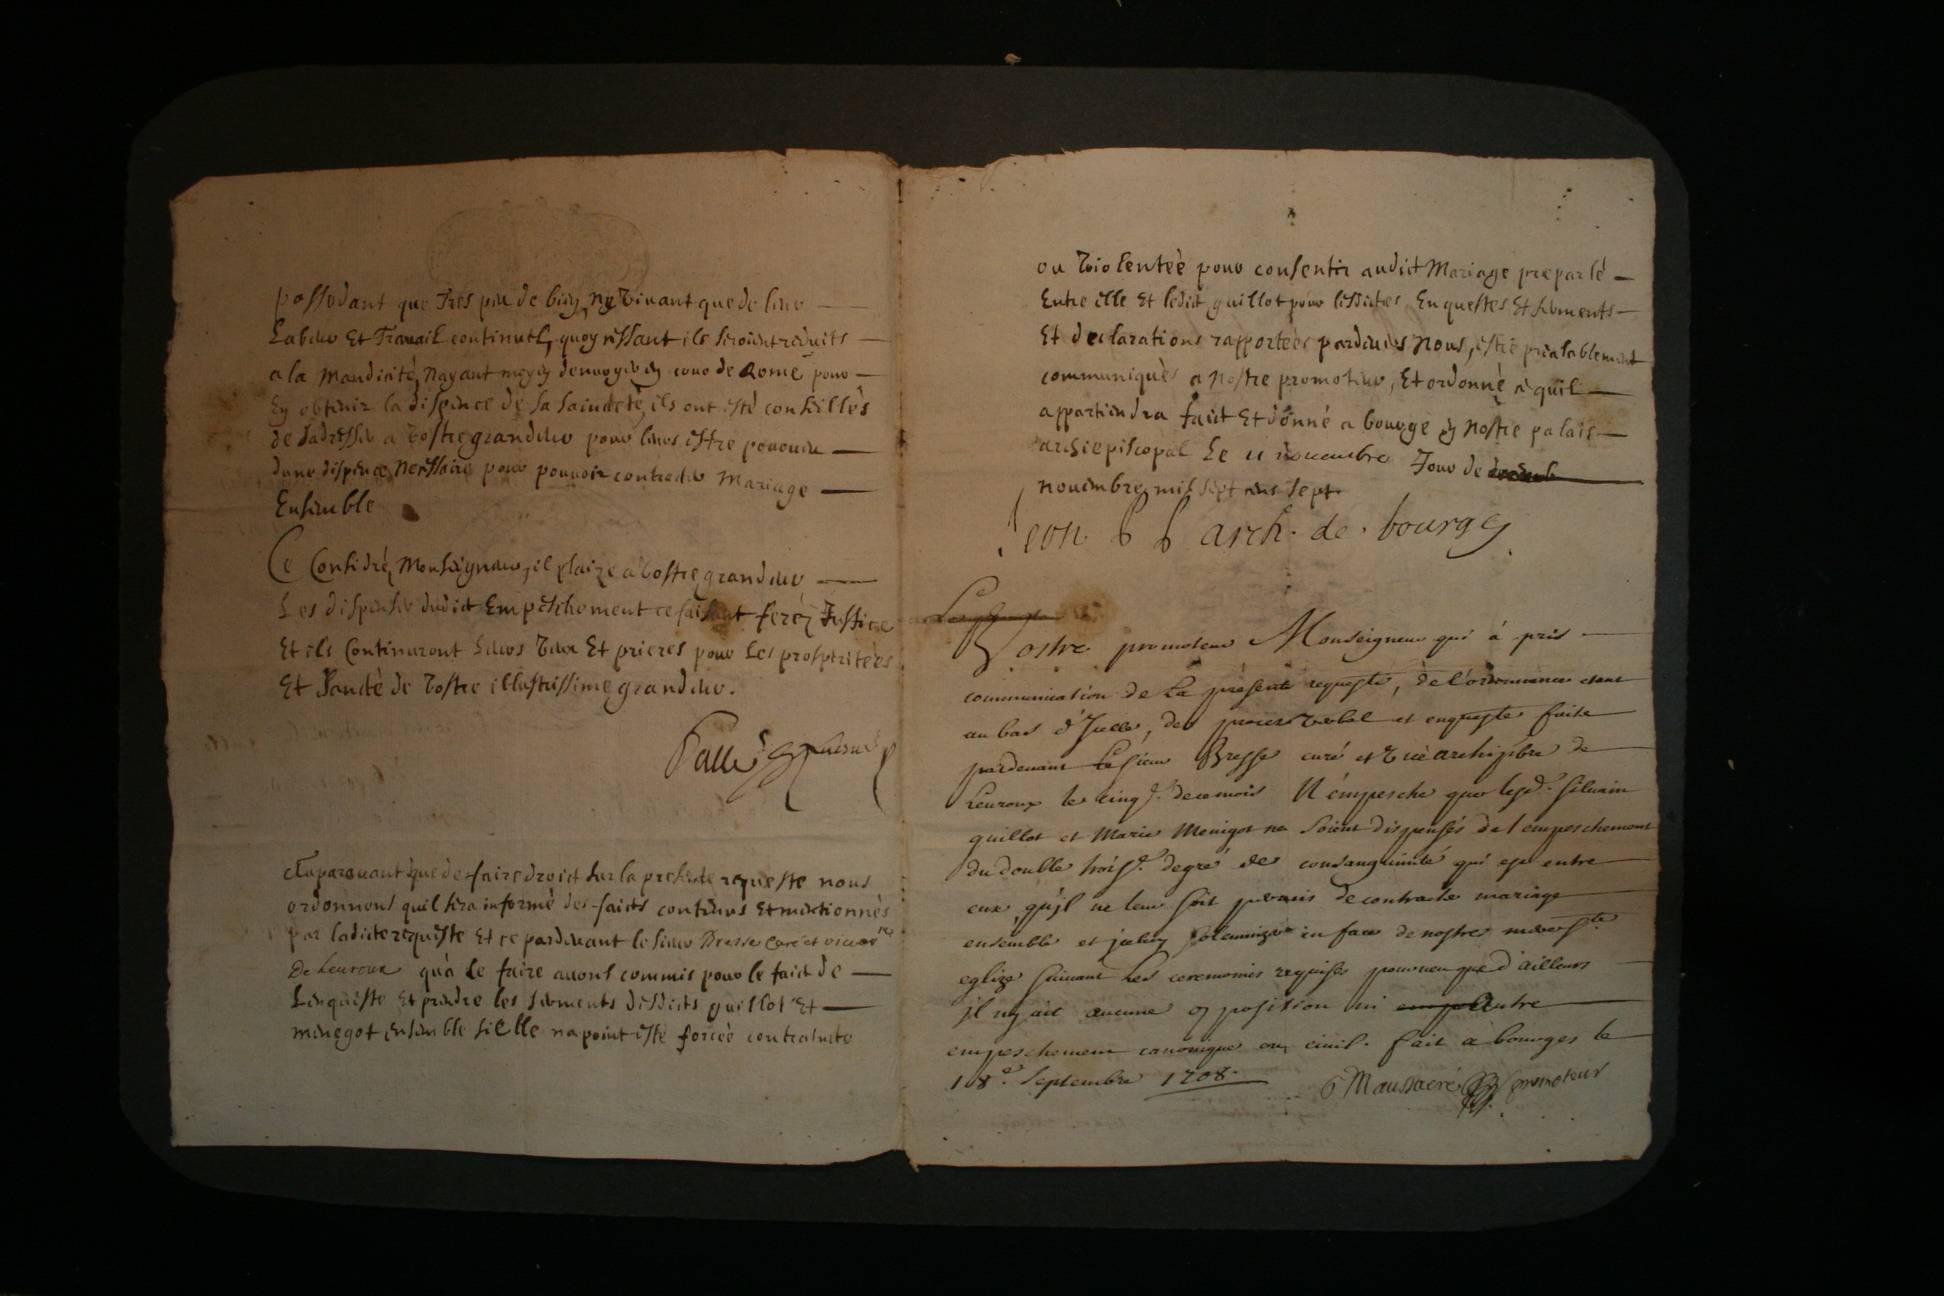 possedant que Tres peu de bien, ne vivant que de leur
Labeur Et Travail continuel, quoy cessant ils seroient reduits
a la mandicité, Nayant moyen denvoyer en cour de Rome pour
En obtenir la dispence de sa saincteté, ils ont esté conseillés
de sadresser a vostre grandeur pour leur estre pourveu
dune dispence necessaire pour pouvoir contracter Mariage
Ensemble
Ce Consideré, Monseigneur, il plaize a vostre grandeur
Les dispenser dudict Empeschement ce faisant ferez Justice
Et ils Continuront leurs vœux Et prieres pour Les prosperitées
Et Santé de vostre illustrissime grandeur.
Auparavant que de faire droict sur la presente requeste nous
ordonnons quil sera informé des faicts contenus Et mentionnés
par ladicte requeste Et ce pardevant le sieur Bresse Curé et vicar
De Levroux qu'a Le faire avons commis pour le faict de
Lenqueste Et prendre les serments desdicts guillot Et
menegot ensemble si elle na point esté forcée contrainte
ou violentée pour consentir audict Mariage preparlé
Entre elle Et ledict guillot pour lesdictes Enquestes Et serments
Et declarations rapportées pardevers Nous, estre prealablement
communiqués a Nostre promoteur, Et ordonné ce quil
appartiendra faict Et donné a bourge en Nostre palais
archiepiscopal Le 11 novembre Jour de
novembre mil sept cens sept.
Leon P P arch. de. bourges
Vostre promoteur Monseigneur qui à pris
communication de La présente requeste, de l'ordonnance etant
au bas d'Jcelle, des procez verbal et enqueste faite
pardevant Le sieur Bresse curé et vic archiprbre de
Levroux le cinq. de ce mois N'émpesche que lesd. silvain
guillot et Marie Menigot ne soient dispensés de l'empeschement
du double trois. degré de consanguinité qui est entre
eux, qu'jl ne leur soit permis de contracter mariage
ensemble et jceluy solemnizer en face de nostre mere Ste
eglize suivant Les ceremonies requises pourveu que d'ailleurs
jl ny ait aucune opposition ni Autre
empeschement canonique ou civil. fait a bourges le
18e. septembre 1708.
Maussacré promoteur